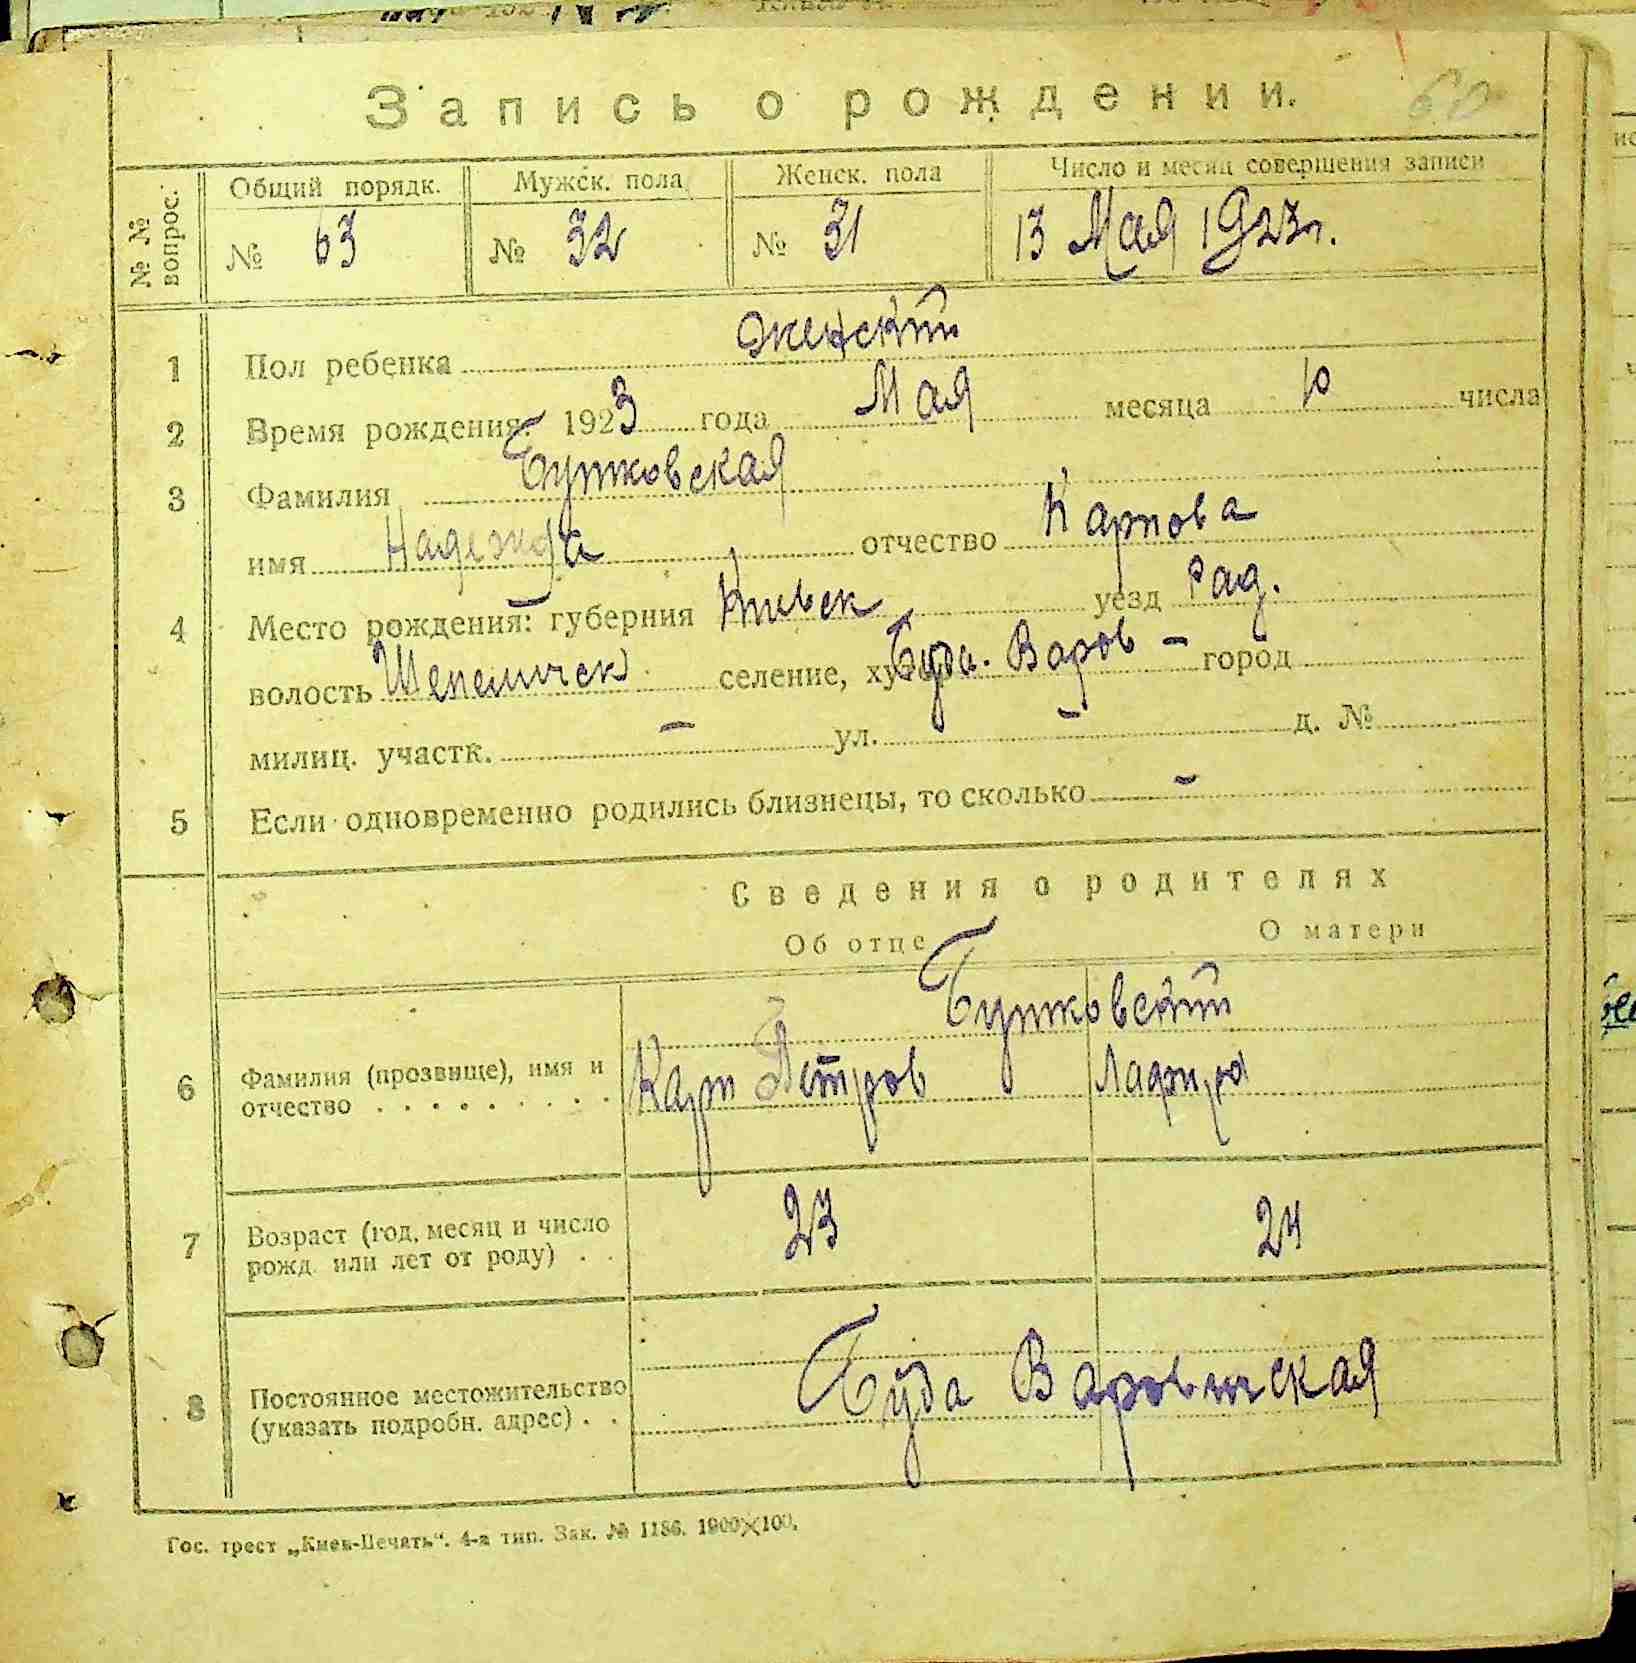 60
Запись о рождении.
№ № вопрос.
Общий порядк. Мужск. пола Женск. пола Число и месяц совершения записи
№ 63 № 32 № 31 13 Мая 1923 г.
1 Пол ребенка женский
2 Время рождения: 1923 года Мая месяца 10 числа
3 Фамилия Бутковская
имя Надежда отчество Карпова
4 Место рождения: губерния Киевск уезд Рад.
волость Шепеличск селение, Буда. Варов - город
милиц. участк. - ул. - д. №
5 Если одновременно родились близнецы, то сколько -
Сведения о родителях
Об отце О матери
Бутковский
6 Фамилия (прозвище), имя и отчество Карп Петров
7 Возраст (год, месяц и число рожд. или лет от роду) 23 24
8 Постоянное местожительство (указать подробн. адрес) Буда Варовичская
Гос. трест „Киев-Печать“. 4-я тип. Зак. № 1186. 1900×100.